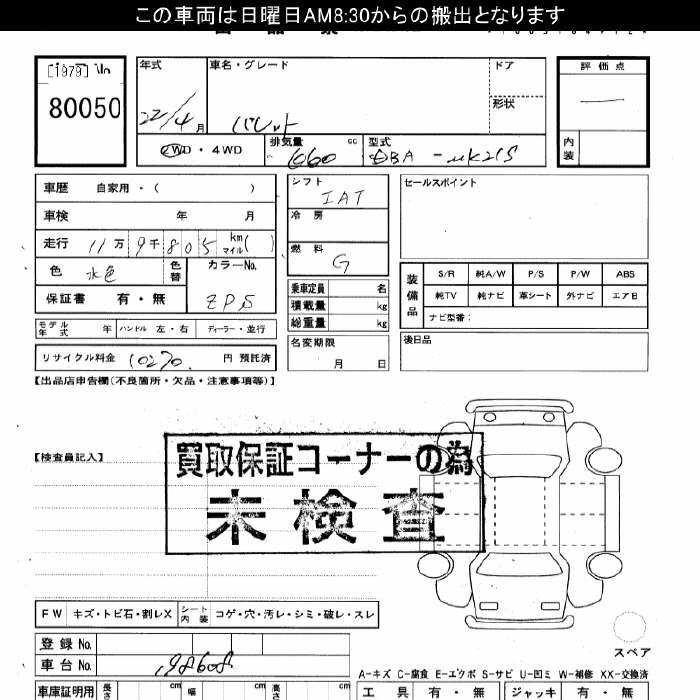 この車両は日曜日AM8:30からの搬出となります
[1979] No
80050
年式 車名・グレード ドア 評価点
22/4月 パレット 形状
2WD・4WD 排気量 660 cc 型式 DBA-MK21S 内装
車歴 自家用・( ) シフト IAT セールスポイント
車検 年 月 冷房
走行 11万9千805 km マイル( ) 燃料 G
色 水色 色替 カラーNo. ZP5
保証書 有・無
乗車定員 名
積載量 kg
総重量 kg
装備品 S/R 純A/W P/S P/W ABS
純TV 純ナビ 革シート 外ナビ エアB
ナビ型番:
モデル年式 年 ハンドル 左・右 ディーラー・並行 名変期限 月 日 後日品
リサイクル料金 10270 円 預託済
【出品店申告欄(不良箇所・欠品・注意事項等)】
【検査員記入】
買取保証コーナーの為
未検査
FW キズ・トビ石・割レX シート内装 コゲ・穴・汚レ・シミ・破レ・スレ
スペア
登録No.
車台No. 198608
A-キズ C-腐食 E-エクボ S-サビ U-凹ミ W-補修 XX-交換済
車庫証明用 長さ cm 幅 cm 高さ cm 工具 有・無 ジャッキ 有・無